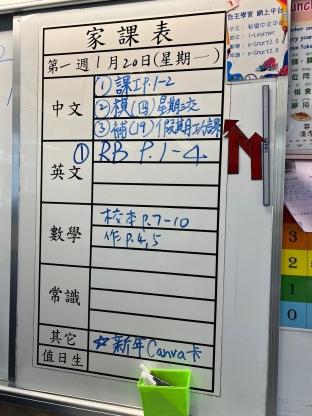 家課表
第一週 1月20日(星期一)
中文
① 課工P.1-2
② 模(四)星期三交
③ 補(19)假期功課
英文
① RB P.1-4
數學
校本P.7-10
作P.4,5
常識
其它
值日生
☆新年Canva卡
自主學習 網上平台
3
2
1